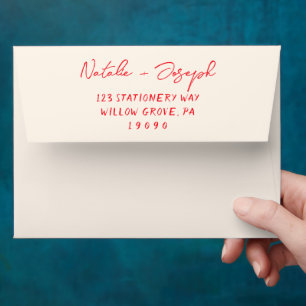 Natalie + Joseph
123 STATIONERY WAY
WILLOW GROVE, PA
19090